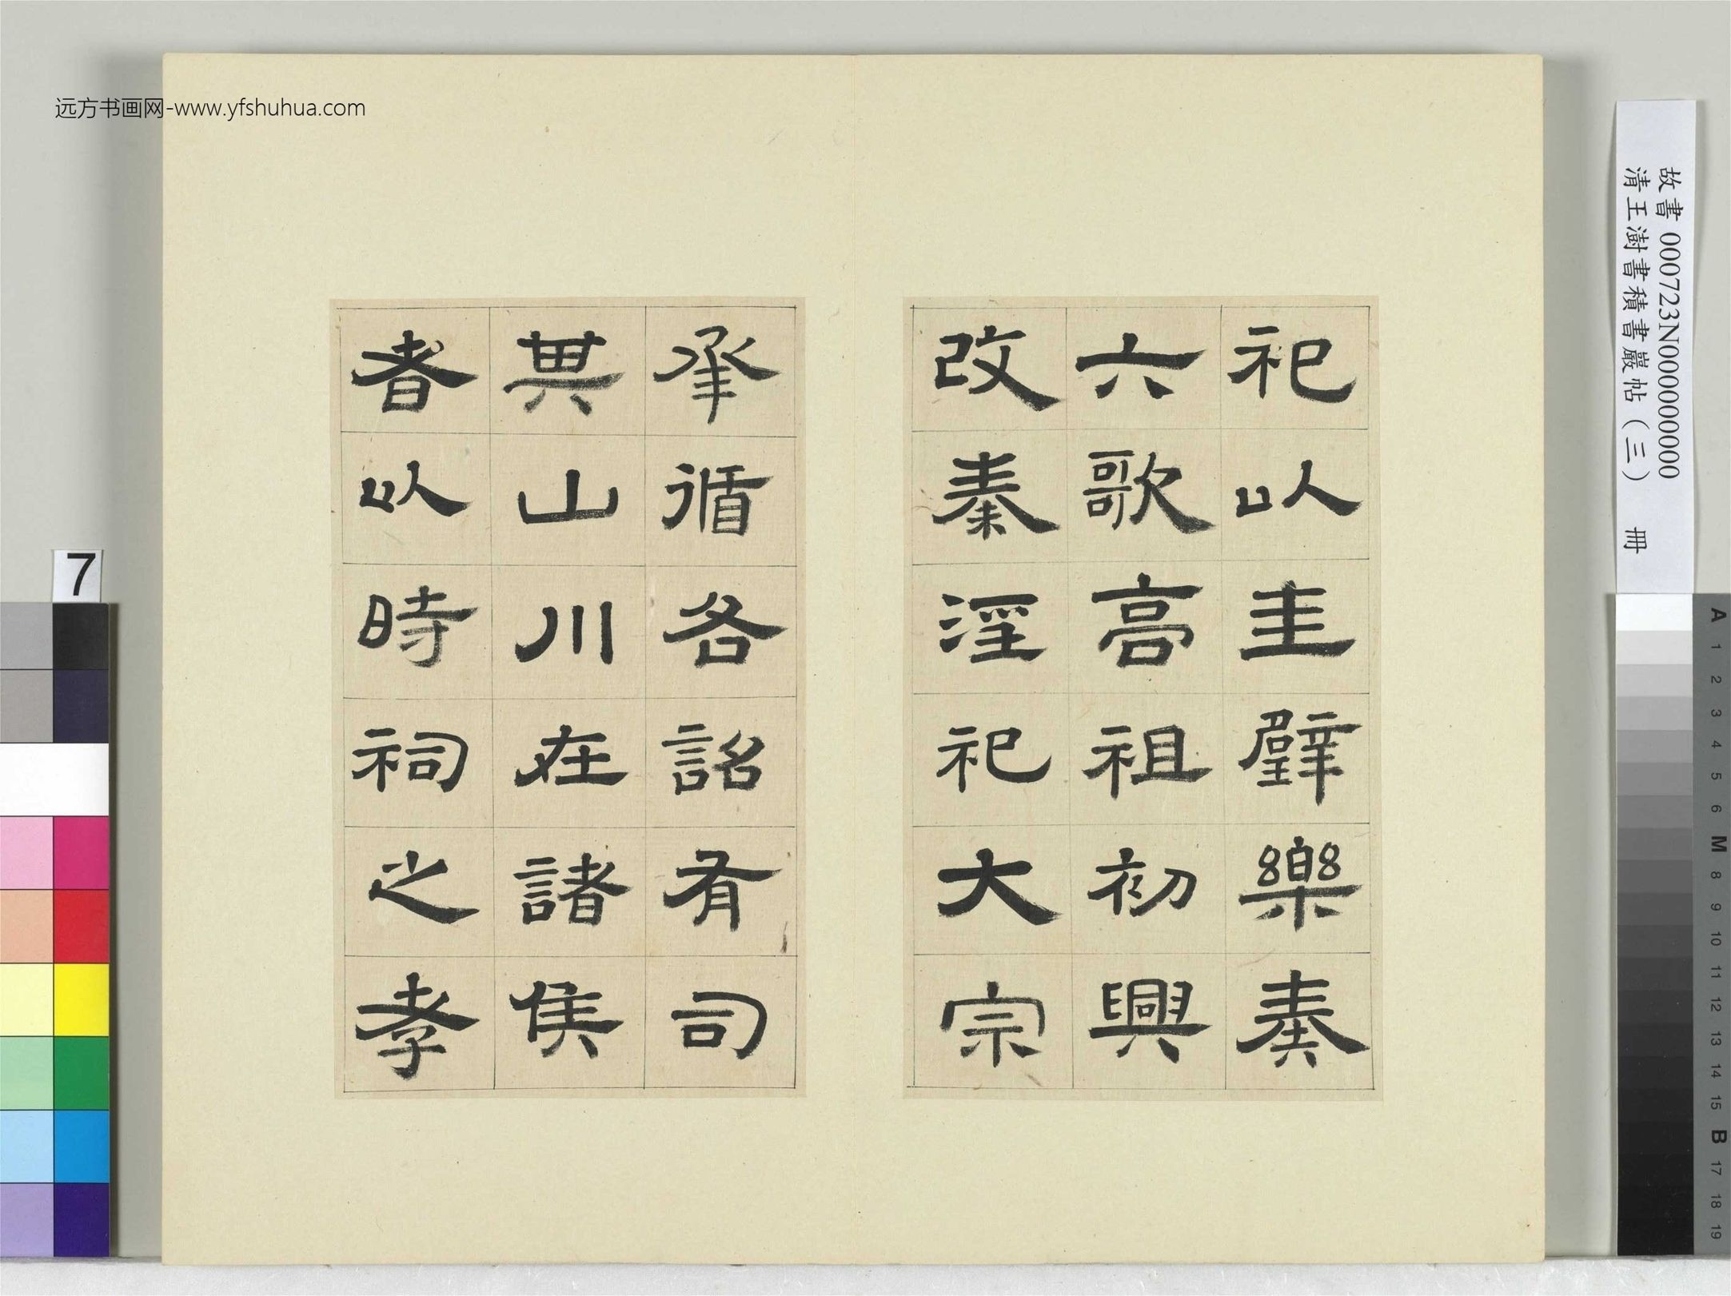 远方书画网-www.yfshuhua.com
祀以圭璧樂奏
六歌高祖初興
改秦淫祀大宗
承循各詔有司
其山川在諸侯
者以時祠之孝
故書 000723N000000000
清王澍書積書巖帖（三） 冊
7
A
1
2
3
4
5
6
M
8
9
10
11
12
13
14
15
B
17
18
19